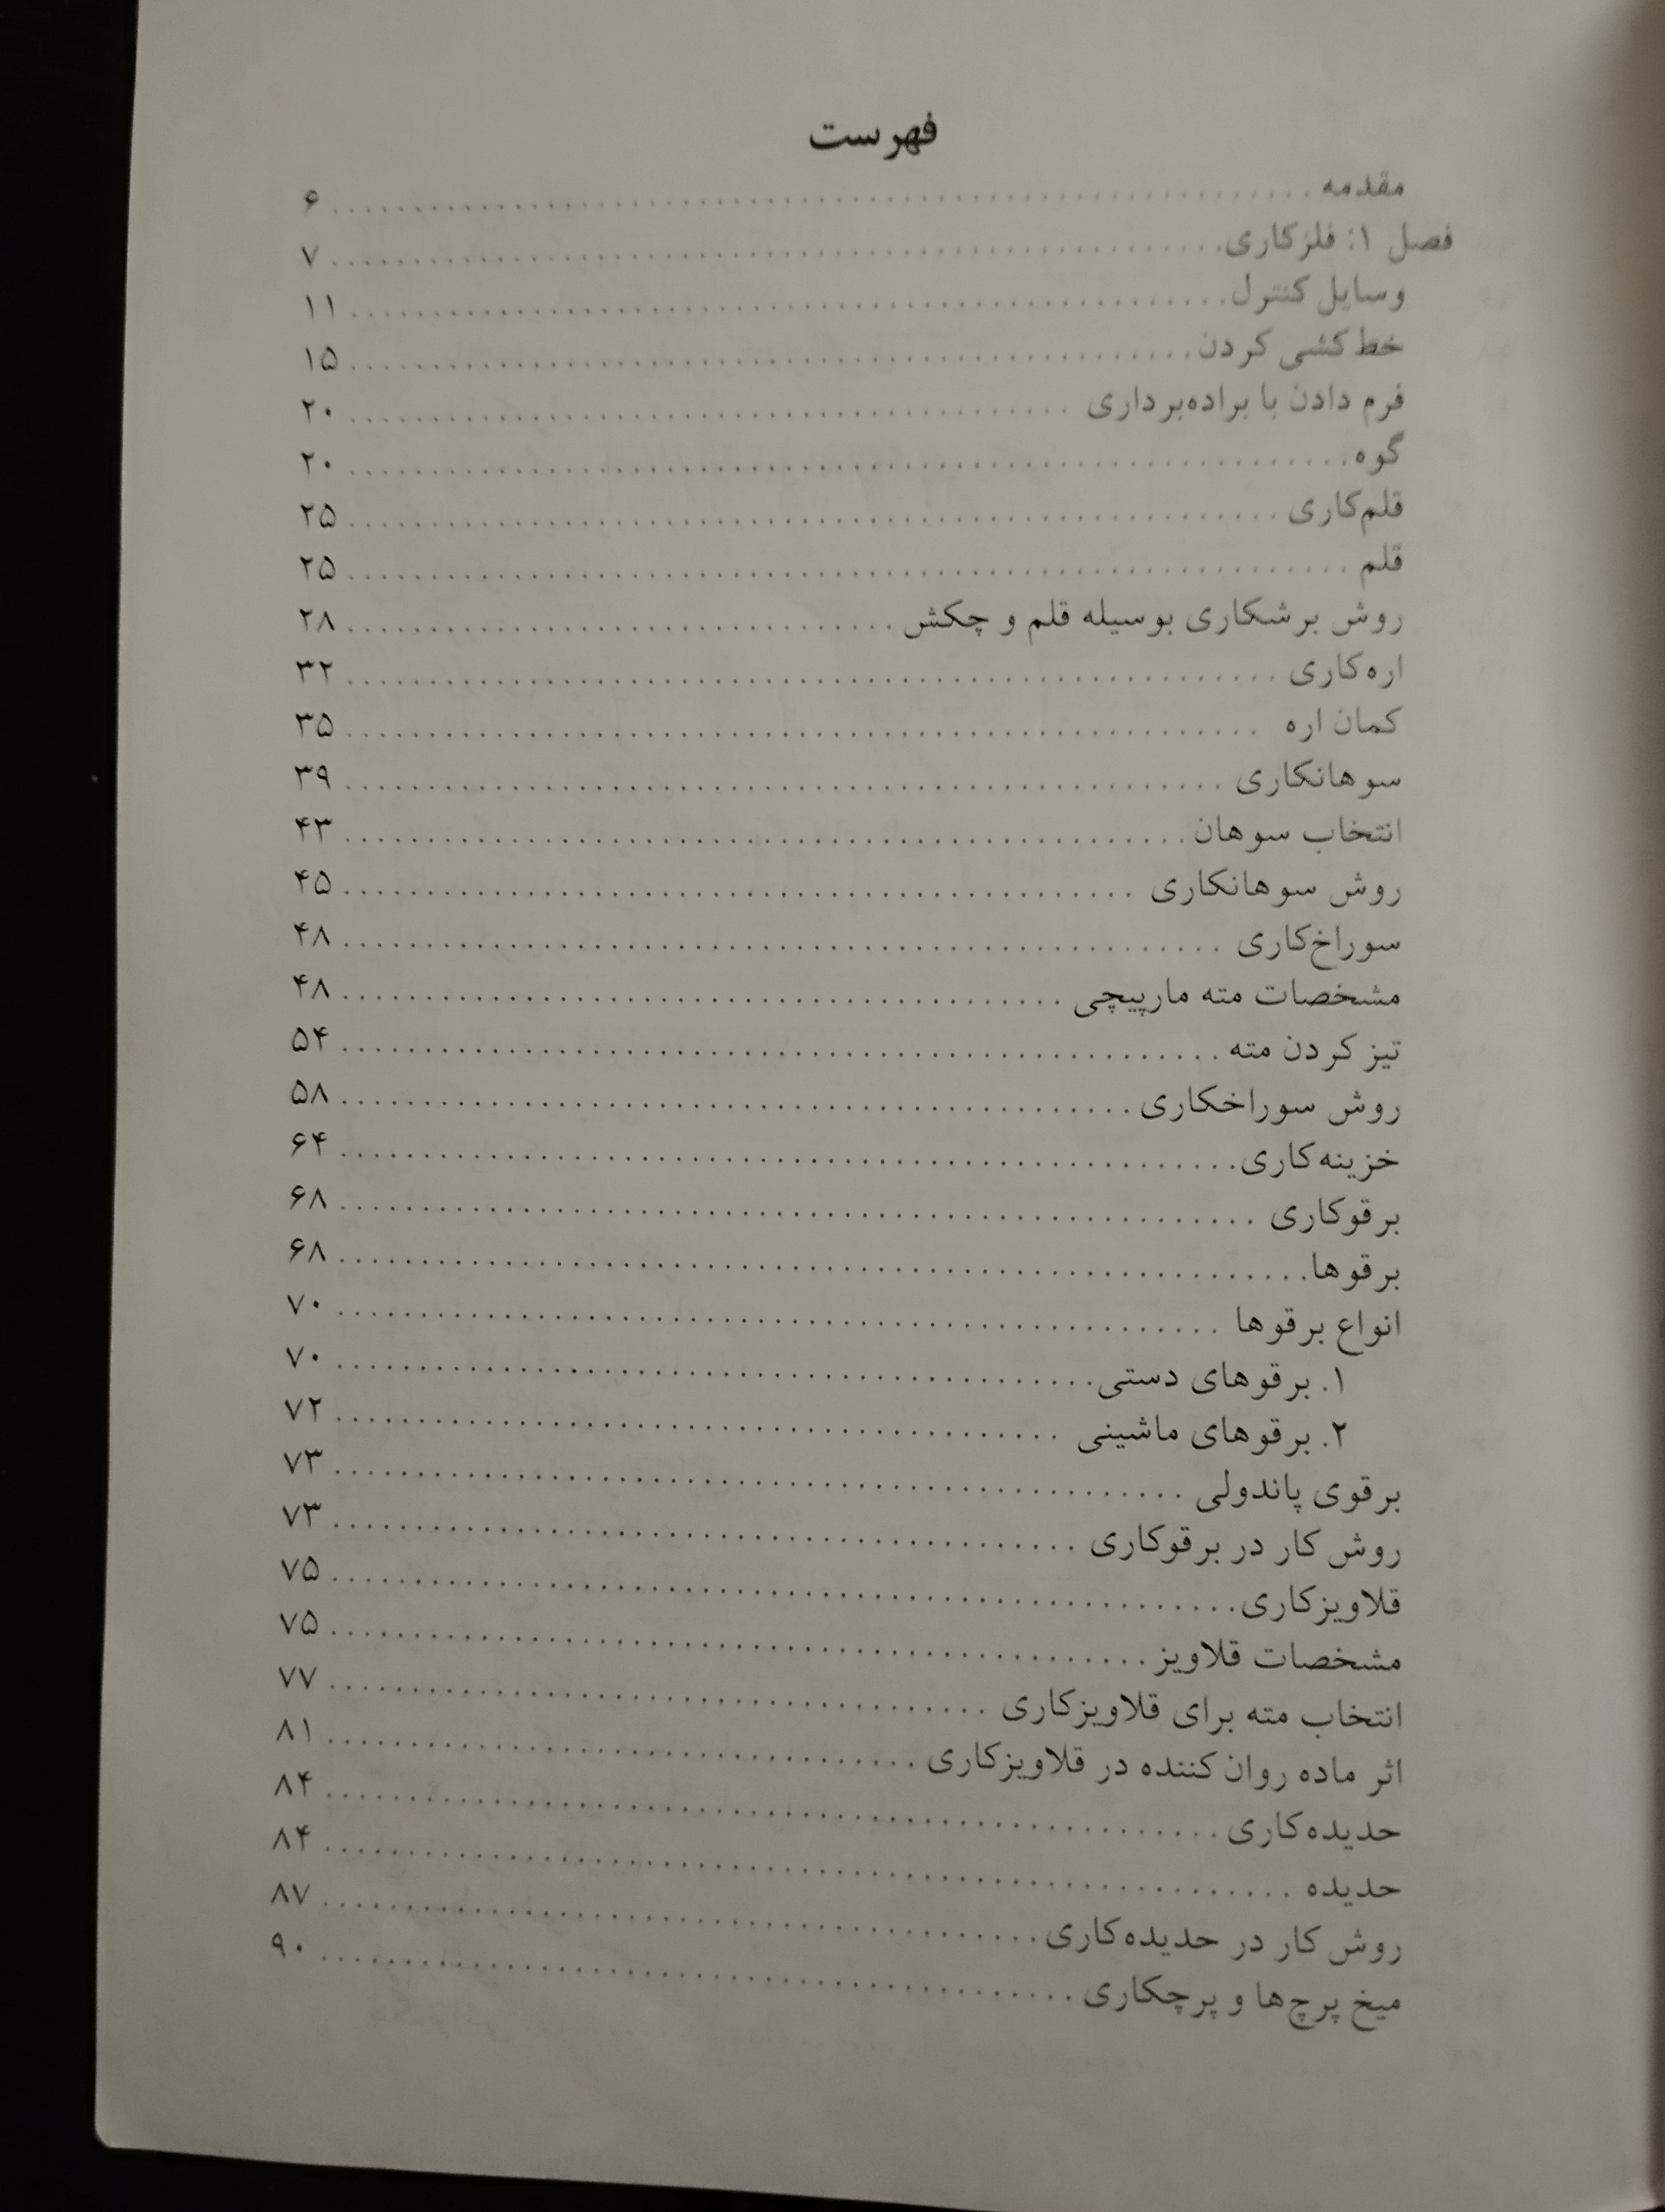 فهرست
مقدمه ........ ۶
فصل ۱: فلزکاری ........ ۷
وسایل کنترل ........ ۱۱
خط‌کشی کردن ........ ۱۵
فرم دادن با براده‌برداری ........ ۲۰
گوه ........ ۲۰
قلم‌کاری ........ ۲۵
قلم ........ ۲۵
روش برشکاری بوسیله قلم و چکش ........ ۲۸
اره‌کاری ........ ۳۲
کمان اره ........ ۳۵
سوهانکاری ........ ۳۹
انتخاب سوهان ........ ۴۳
روش سوهانکاری ........ ۴۵
سوراخ‌کاری ........ ۴۸
مشخصات مته مارپیچی ........ ۴۸
تیز کردن مته ........ ۵۴
روش سوراخکاری ........ ۵۸
خزینه‌کاری ........ ۶۴
برقوکاری ........ ۶۸
برقوها ........ ۶۸
انواع برقوها ........ ۷۰
۱. برقوهای دستی ........ ۷۰
۲. برقوهای ماشینی ........ ۷۲
برقوی پاندولی ........ ۷۳
روش کار در برقوکاری ........ ۷۳
قلاویزکاری ........ ۷۵
مشخصات قلاویز ........ ۷۵
انتخاب مته برای قلاویزکاری ........ ۷۷
اثر ماده روان کننده در قلاویزکاری ........ ۸۱
حدیده‌کاری ........ ۸۴
حدیده ........ ۸۴
روش کار در حدیده‌کاری ........ ۸۷
میخ پرچ‌ها و پرچکاری ........ ۹۰